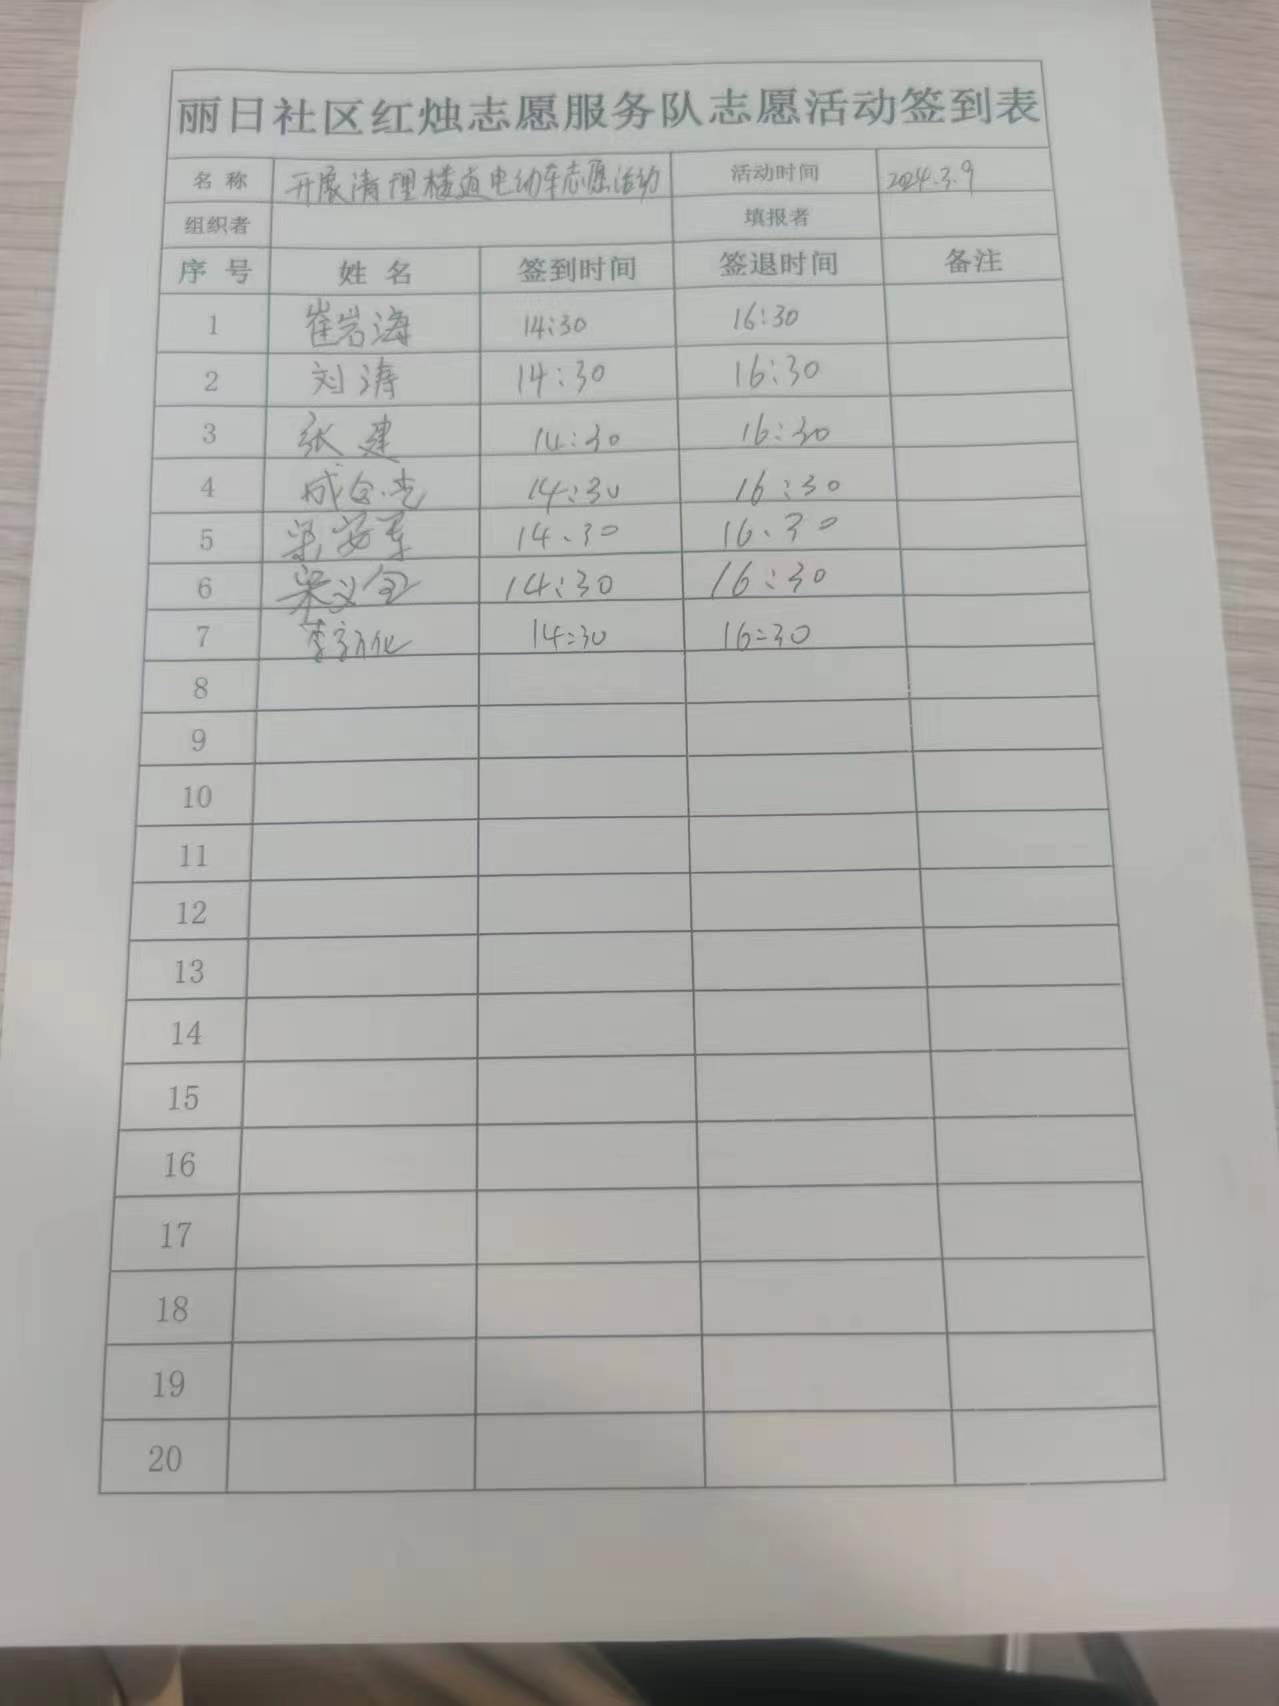 丽日社区红烛志愿服务队志愿活动签到表
名 称 开展清理楼道电动车志愿活动 活动时间 2024.3.9
组织者 填报者
序 号 姓 名 签到时间 签退时间 备注
1 崔岩海 14:30 16:30
2 刘涛 14:30 16:30
3 张建 14:30 16:30
4 14:30 16:30
5 梁安军 14.30 16.30
6 梁义全 14:30 16:30
7 14:30 16:30
8
9
10
11
12
13
14
15
16
17
18
19
20